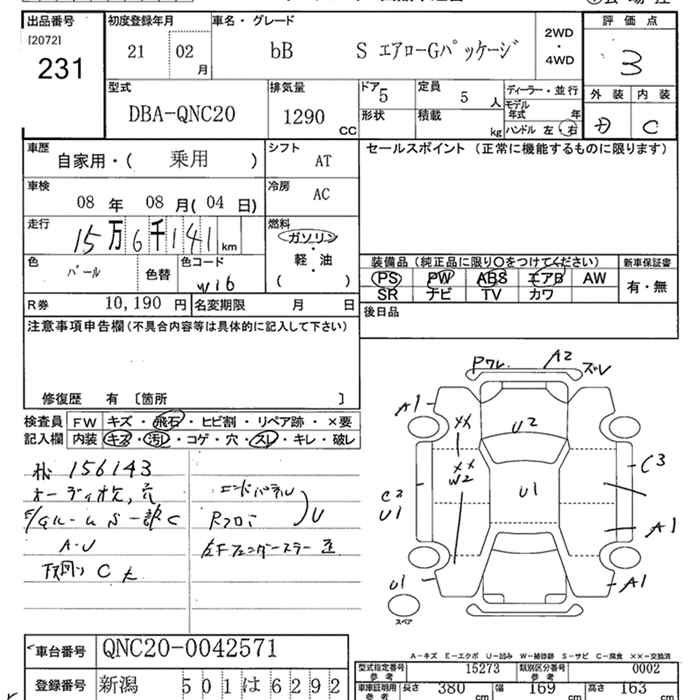 出品番号 初度登録年月 車名・グレード 2WD・4WD 評価点
[2072] 231 21 02月 bB S エアローGパッケージ 3
型式 排気量 ドア 5 定員 5人 ディーラー・並行 外装 内装
DBA-QNC20 1290 CC 形状 積載 kg モデル年式 年 C
ハンドル 左 右
車歴 シフト セールスポイント (正常に機能するものに限ります)
自家用・( 乗用 ) AT
車検 冷房
08 年 08 月(04 日) AC
走行 燃料
15万6千141 km ガソリン
軽・油
( )
色 パール 色替 色コード W16
装備品(純正品に限り○をつけてください) 新車保証書
PS PW ABS エアB AW 有・無
SR ナビ TV カワ
R券 10,190 円 名変期限 月 日 後日品
注意事項申告欄(不具合内容等は具体的に記入して下さい)
修復歴 有 〔箇所 〕
検査員 FW キズ・飛石・ヒビ割・リペア跡・×要
記入欄 内装 キズ・汚レ・コゲ・穴・スレ・キレ・破レ
156143
エンドパネル
Rフロア U
S一部C
A-U
下回り C 大
Pワレ A2 ズレ
A1 XX U2
XX
W2 U1 C3
C2
U1 A1
U1 A1
スペア
A-キズ E-エクボ U-凹み W-補修跡 S-サビ C-腐食 ××-交換済
車台番号 QNC20-0042571
型式指定番号 参考 15273 類別区分番号 参考 0002
登録番号 新潟 501 は 6292
車庫証明用 参考 長さ 380 cm 幅 169 cm 高さ 163 cm